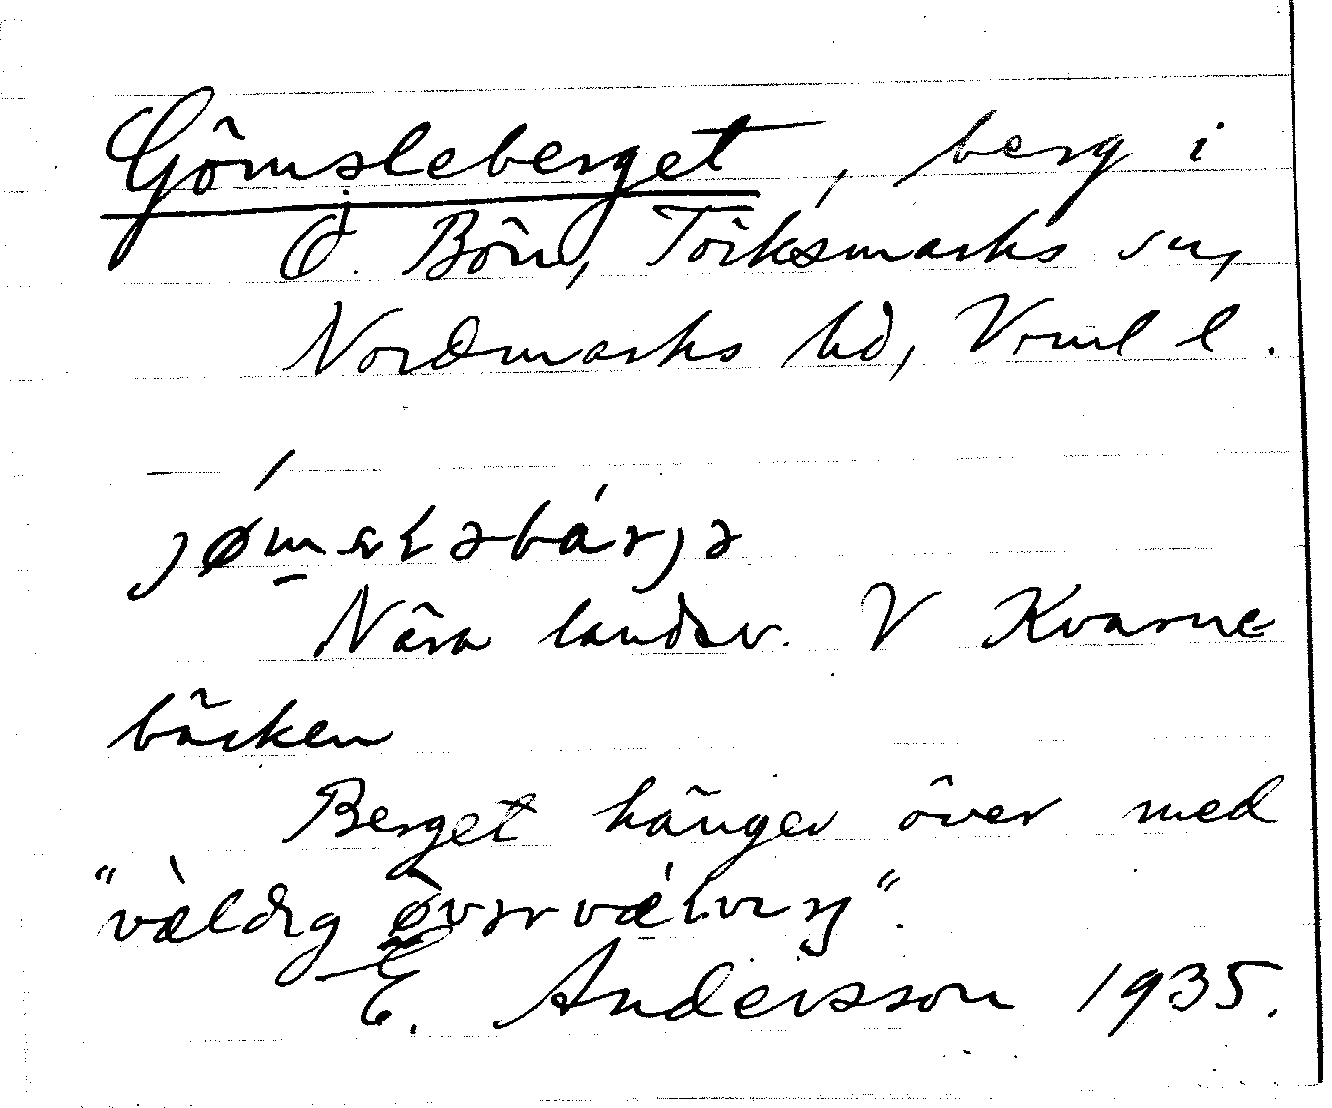 Gömsleberget, berg i
Ö. Bön, Töcksmarks sn,
Nordmarks hd, Vrml l.
jǿmsləbárjə
Nära landsv. V Kvarne
bäcken
Berget hänger över med
"vældig øvərvælviŋ".
E. Andersson 1935.